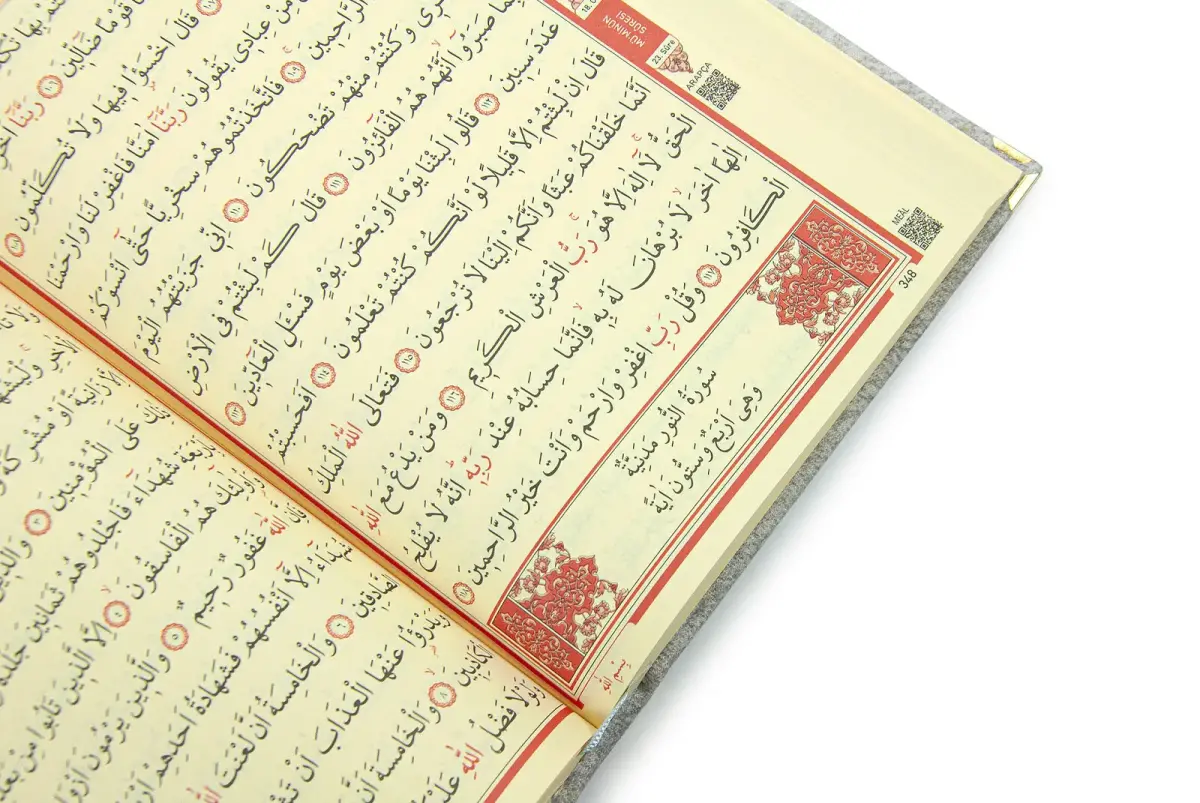 MÜ'MİNÛN SÛRESİ
23. Sûre
ARAPÇA
قَوْمًا ضَٓالِّينَ ١٠٦ رَبَّنَٓا
قَالَ اخْسَؤُ۫ا فِيهَا وَلَا تُكَلِّمُونِ ١٠٨
مِنْ عِبَادِى يَقُولُونَ رَبَّنَٓا اٰمَنَّا فَاغْفِرْ لَنَا وَارْحَمْنَا
الرَّاحِمِينَ ١٠٩ فَاتَّخَذْتُمُوهُمْ سِخْرِيًّا حَتّٰٓى اَنْسَوْكُمْ
وَكُنْتُمْ مِنْهُمْ تَضْحَكُونَ ١١٠ اِنِّى جَزَيْتُهُمُ الْيَوْمَ
بِمَا صَبَرُٓوا اَنَّهُمْ هُمُ الْفَٓائِزُونَ ١١١ قَالَ كَمْ لَبِثْتُمْ فِى الْاَرْضِ
عَدَدَ سِنِينَ ١١٢ قَالُوا لَبِثْنَا يَوْمًا اَوْ بَعْضَ يَوْمٍ فَسْـَٔلِ الْعَٓادِّينَ ١١٣
قَالَ اِنْ لَبِثْتُمْ اِلَّا قَلِيلًا لَوْ اَنَّكُمْ كُنْتُمْ تَعْلَمُونَ ١١٤ اَفَحَسِبْتُمْ
اَنَّمَا خَلَقْنَاكُمْ عَبَثًا وَاَنَّكُمْ اِلَيْنَا لَا تُرْجَعُونَ ١١٥ فَتَعَالَى اللّٰهُ الْمَلِكُ
الْحَقُّ لَٓا اِلٰهَ اِلَّا هُوَ رَبُّ الْعَرْشِ الْكَرِيمِ ١١٦ وَمَنْ يَدْعُ مَعَ اللّٰهِ
اِلٰهًا اٰخَرَ لَا بُرْهَانَ لَهُ بِهِ فَاِنَّمَا حِسَابُهُ عِنْدَ رَبِّهِ اِنَّهُ لَا يُفْلِحُ
الْكَافِرُونَ ١١٧ وَقُلْ رَبِّ اغْفِرْ وَارْحَمْ وَاَنْتَ خَيْرُ الرَّاحِمِينَ ١١٨
سُورَةُ النُّورِ مَدَنِيَّةٌ
وَهِىَ اَرْبَعٌ وَسِتُّونَ اٰيَةً
بِسْمِ اللّٰهِ
MEÂL
348
عَلَى الْمُؤْمِنِينَ ٣ وَالَّذِينَ
شُهَدَٓاءَ فَاجْلِدُوهُمْ ثَمَانِينَ جَلْدَةً
هُمُ الْفَاسِقُونَ ٤ اِلَّا الَّذِينَ تَابُوا مِنْ
اللّٰهَ غَفُورٌ رَحِيمٌ ٥ وَالَّذِينَ يَرْمُونَ
شُهَدَٓاءُ اِلَّٓا اَنْفُسُهُمْ فَشَهَادَةُ اَحَدِهِمْ
الصَّادِقِينَ ٦ وَالْخَامِسَةُ اَنَّ لَعْنَتَ اللّٰهِ
وَيَدْرَؤُ۬ا عَنْهَا الْعَذَابَ اَنْ
الْكَاذِبِينَ ٨ وَالْخَامِسَةَ اَنَّ
وَلَوْلَا فَضْلُ اللّٰهِ